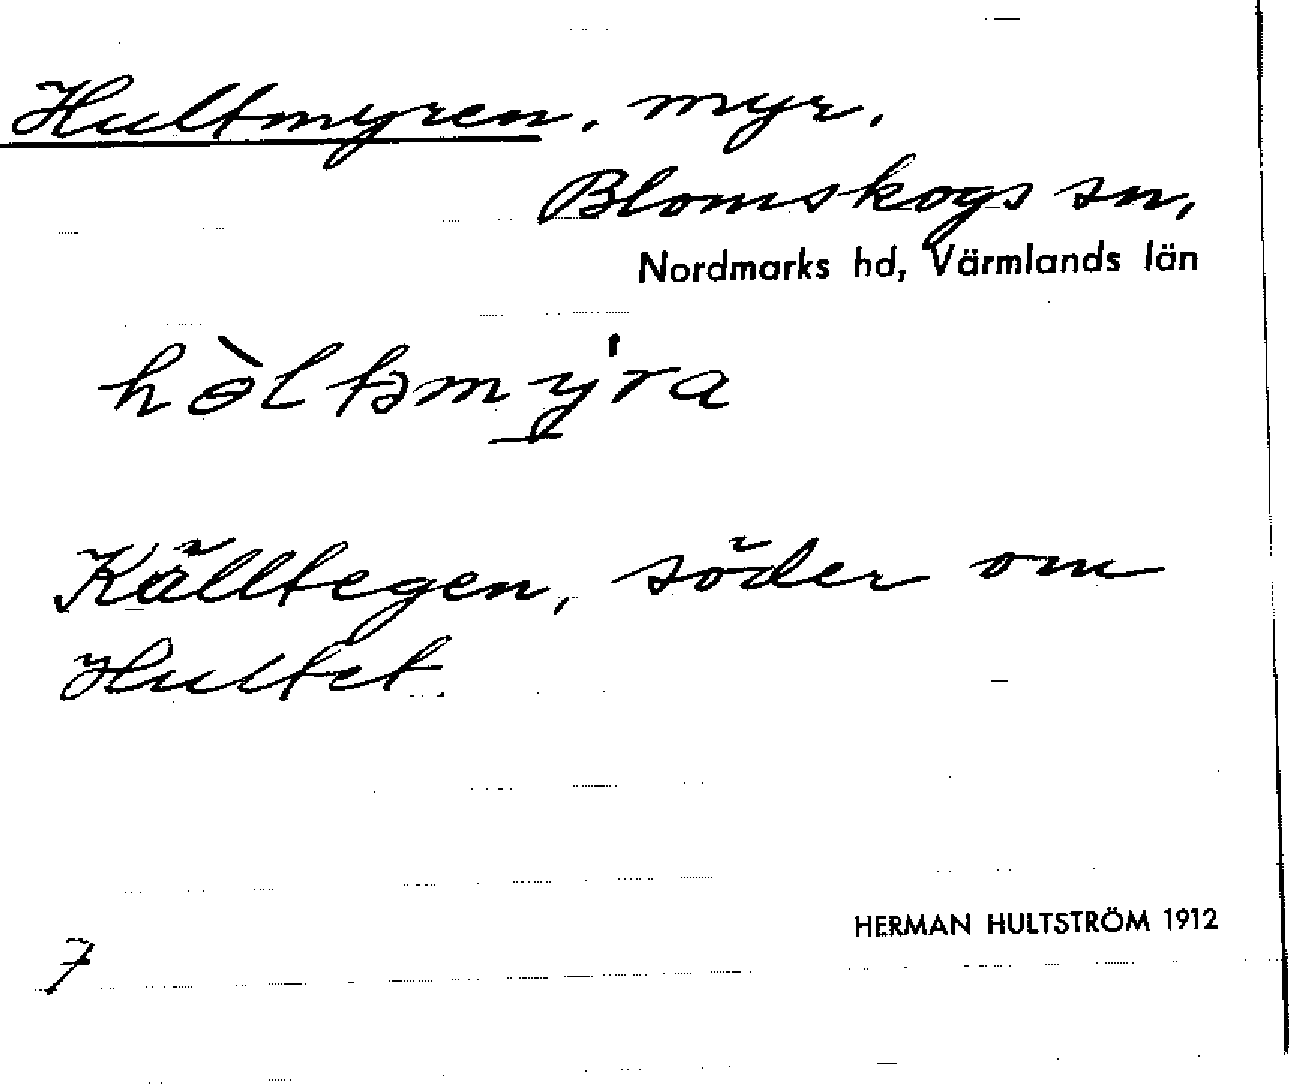 Hultmyren, myr,
Blomskogs sn,
Nordmarks hd, Värmlands län
hòltəmy̱'ra
Källtegen, söder om
Hultet.
7
HERMAN HULTSTRÖM 1912